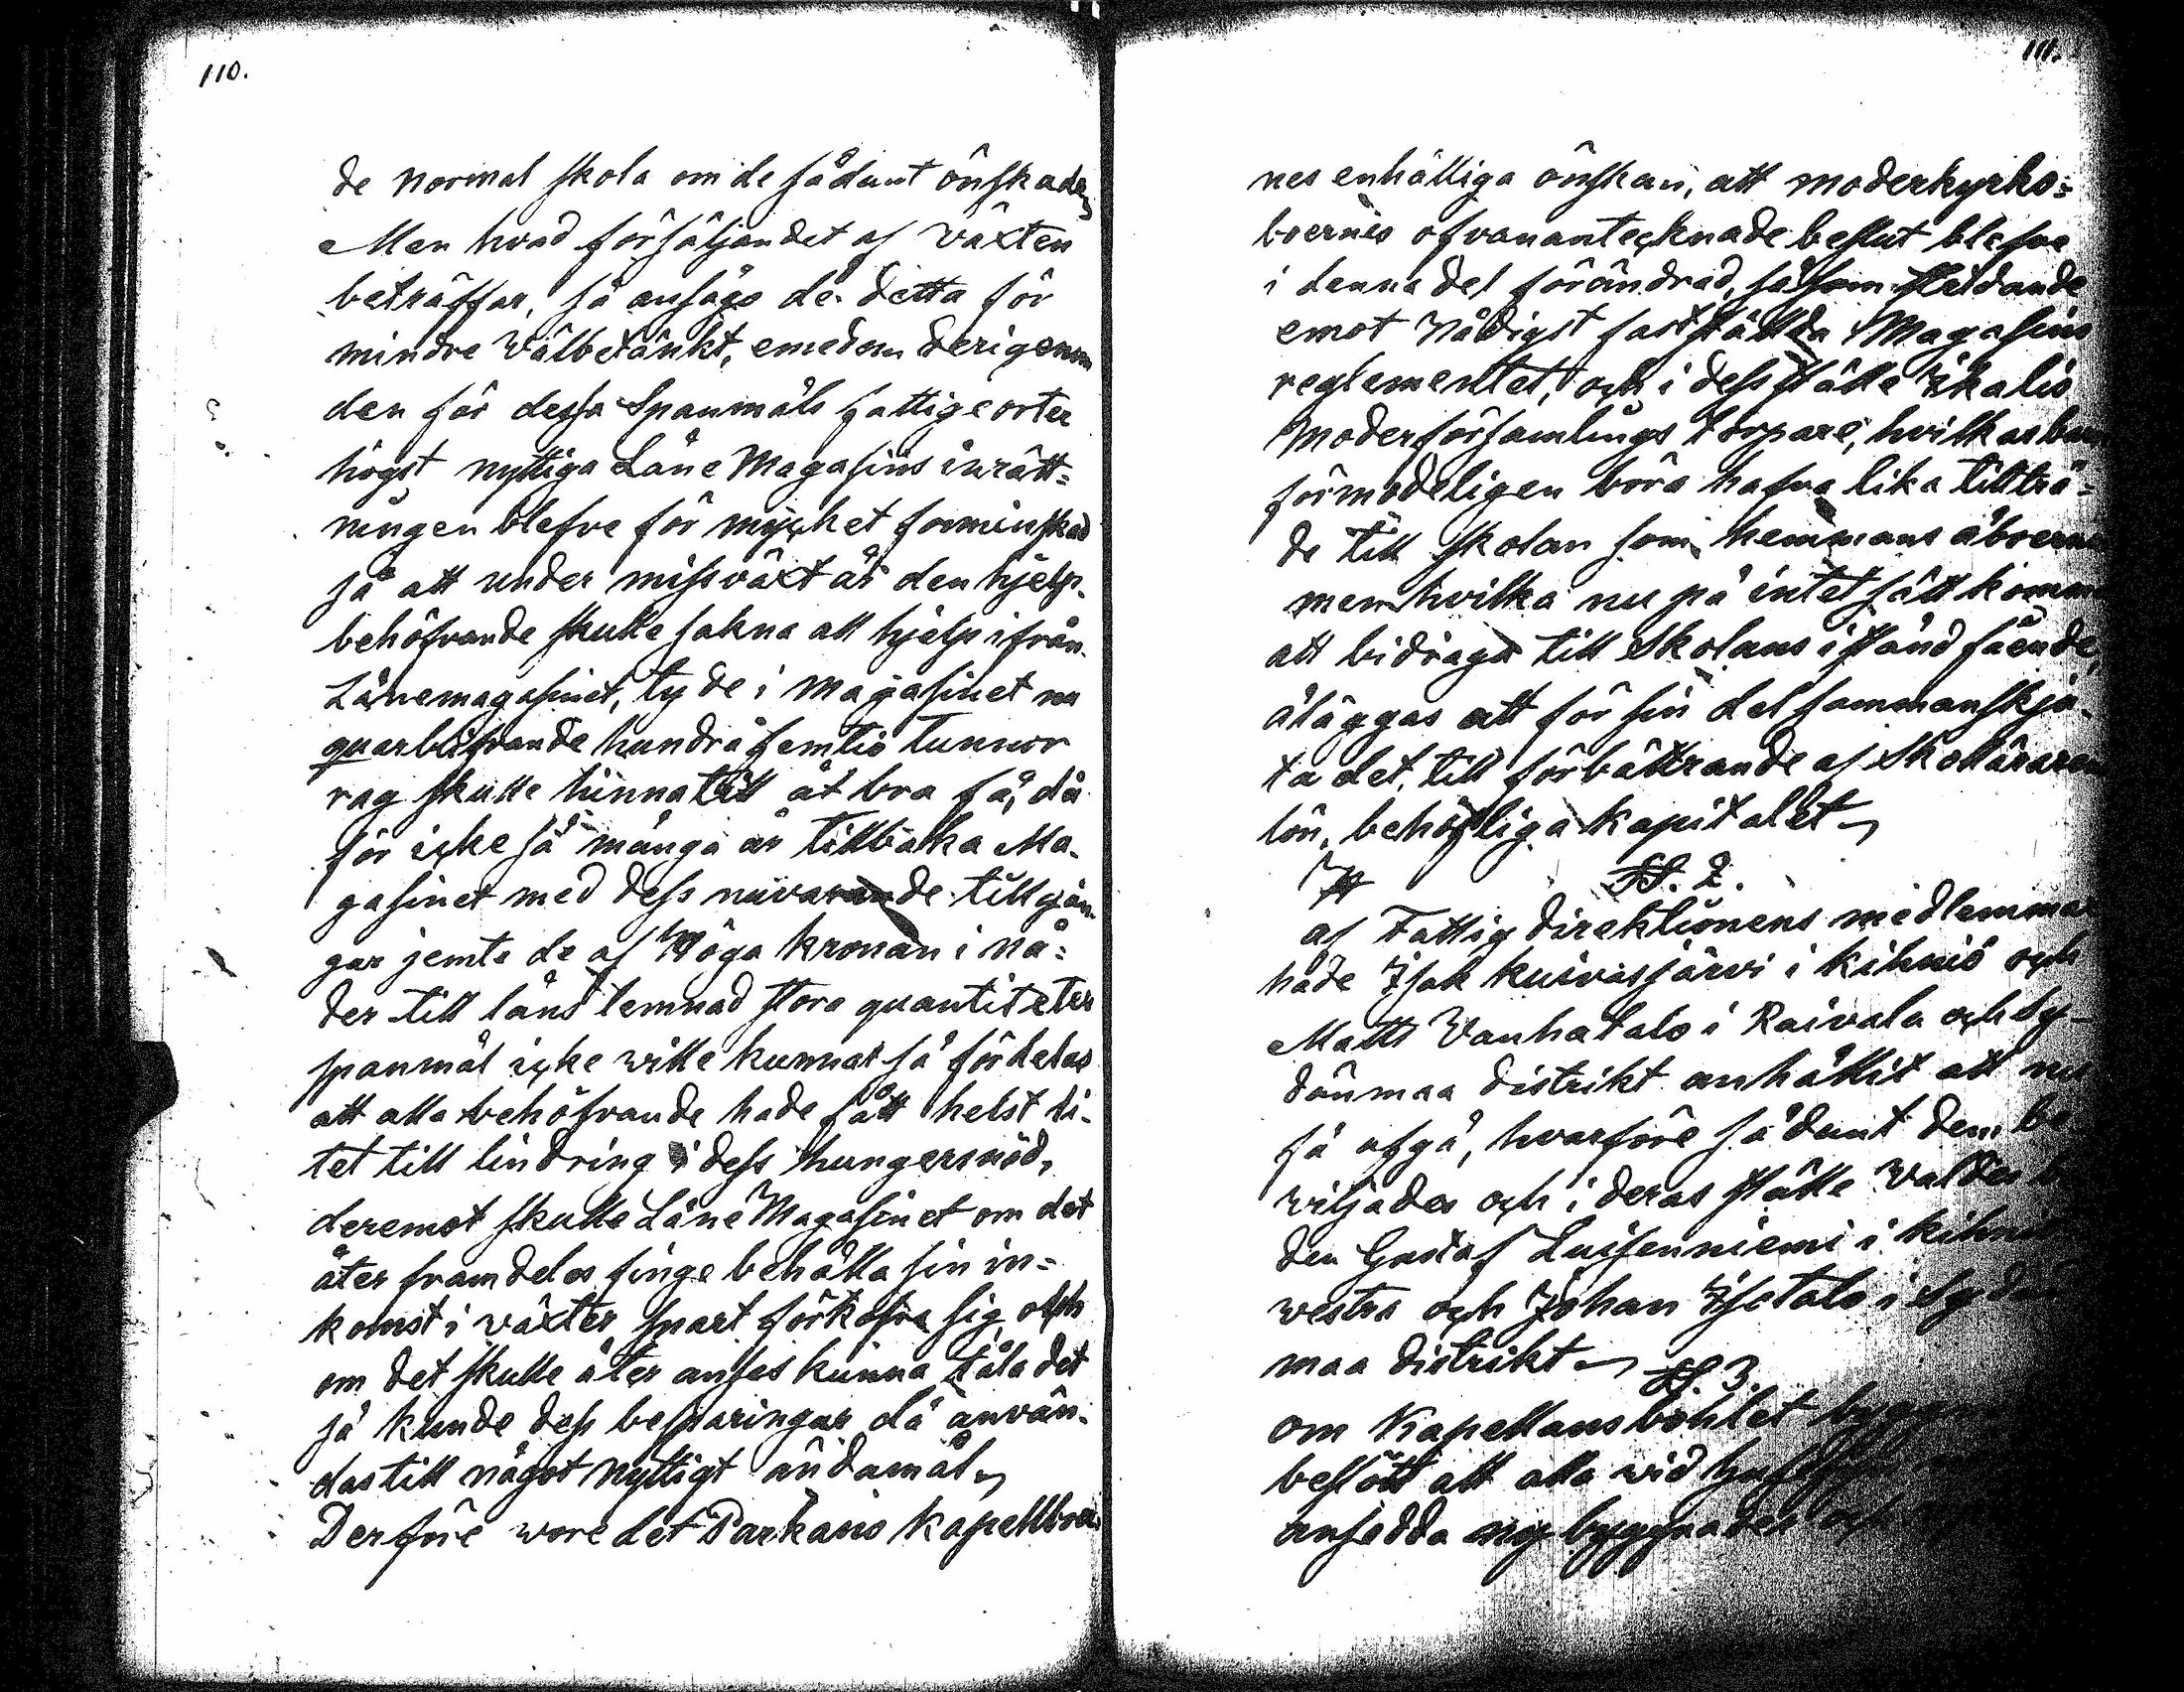 110.
de normal skola om de sådant önskade
Men hvad försäljandet af växten
beträffar, så ansågs de detta för
mindre välbetänkt, emedan derigenom
den för dessa Spanmåls fattige orter
högst nyttiga Låne Magasins inrätt=
ningen blefve för mycket forminskad
så att under missväxt år den hjelp-
behöfvande skulle sakna all hjelp ifrån
Lånemagasinet, ty de i magasinet nu
quarblifvande hundrafemtio tunnor
rag skulle hinna till åt bra få, då
för icke så många år tillbaka Ma-
gasinet med dess nuvarande tillgån-
gar jemte de af Höga kronan i nå=
der till låns lemnad stora quantiteter
spanmål icke wille kunnat så fördelas
att alla behöfvande hade fått helst li-
tet till lindring i dess hungersnöd,
deremot skulle Låne Magasinet om det
åter framdeles finge behålla sin in=
komst i växter snart förkofra sig och
om det skulle åter anses kunna tåla det
så kunde dess besparingar då använ-
das till något nyttigt ändamål
Derföre wore det Parkano Kapellboer-
111.
nes enhälliga önskan, att moderkyrko=
boernes ofvanantecknade beslut blefve
i denna del förändrad, såsom stridande
emot Nådigst fastställda Magasins
reglementet, och i dess ställe Ikalis
Moderförsamlings torpare, hvilkas barn
förmodeligen böra hafva lika tillträ=
de till skolan som hemmans åboerne
men hvilka nu på intet sätt komma
att bidraga till Skolans istånd fående,
åläggas att för sin del sammanskju-
ta det, till förbättrande af Skollärarens
lön, behöfliga kapitalet
§§. 2.
af Fattig direktionens medlemmar
hade Isak Kuivasjärvi i Kihniö och
Matts Vanhatalo i Raivala och Sy-
dänmaa distrikt anhållit att nu
få afgå, hvarföre sådant dem be-
viljades och i deras ställe valdes
den Gustaf Luisenniemi i Kihniö
westra och Johan Isotalo i Sydän
maa distrikt
§§. 3.
om Kapellansbohlet
beslöts att alla wid
ansedda ny byggnader och